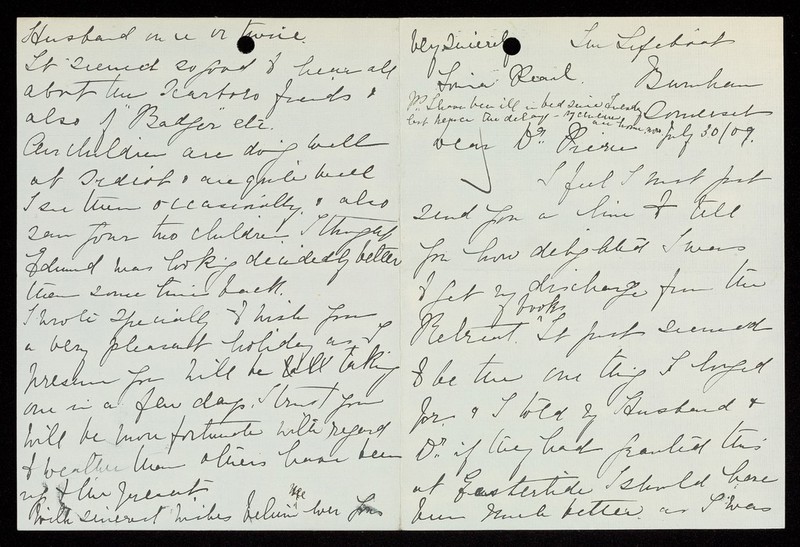 Husband once or twice.
It seemed so good to hear all
about the Scarboro friends &
also of "Badger" etc.
Our children are doing well
at & are quite well
I see them occasionally, & also
saw your two children I thought
Edmund was looking decidedly better
than some time back.
I wrote specially to wish you
a very pleasant holiday as I
presume you will be taking
one in a few days. I trust you
will be more fortunate with regard
to weather than others have been
up to the present.
With sincerest wishes believe me ever yours
very sincerely
Burnham
Somerset
July 30/09.
been ill in bed since Tuesday
last hence the delay - am now
Dear Dr.
I feel I must just
send you a line to tell
you how delighted I was
to get my discharge from the
books
Retreat. It just seemed
to be the one thing I longed
for. & I told my Husband &
Dr. if they had granted this
at Eastertide I should have
been much better. as I was